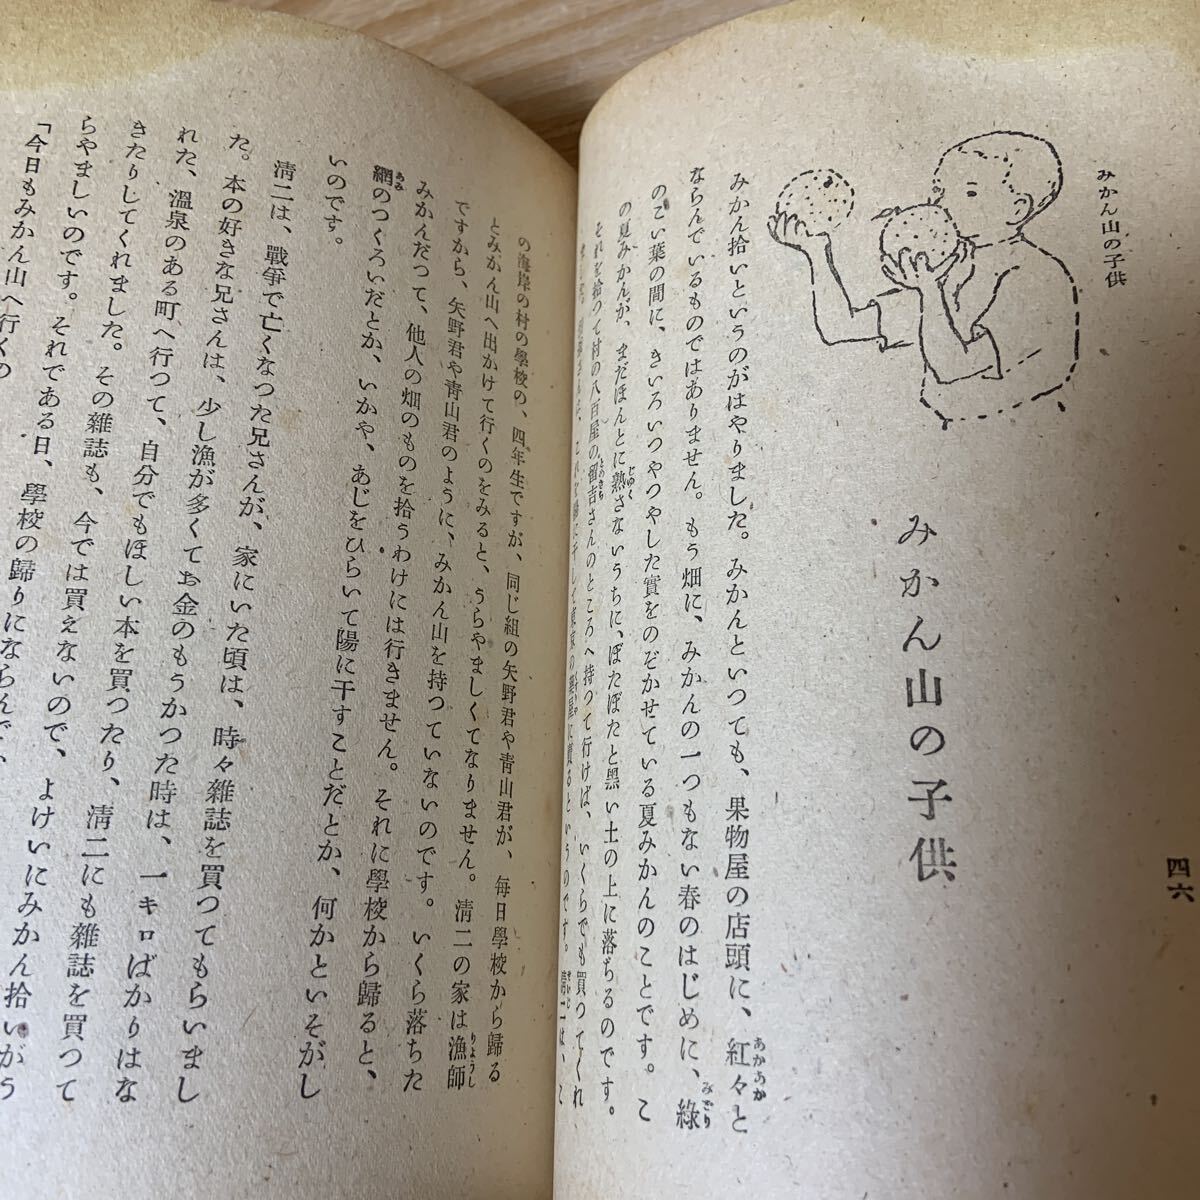 みかん山の子供
四六
みかん山の子供
みかん拾いというのがはやりました。みかんといつても、果物屋の店頭に、紅々と
ならんでいるものではありません。もう畑に、みかんの一つもない春のはじめに、綠
のこい葉の間に、きいろいつやつやした實をのぞかせている夏みかんのことです。こ
の夏みかんが、まだほんとに熟さないうちに、ぼたぼたと黑い土の上に落ちるのです。
それを拾って村の八百屋の留吉さんのところへ持つて行けば、いくらでも買つてくれ
に干して東京の藥屋に賣るというのです。淸二は、こ
の海岸の村の學校の、四年生ですが、同じ組の矢野君や靑山君が、每日學校から歸る
とみかん山へ出かけて行くのをみると、うらやましくてなりません。淸二の家は漁師
ですから、矢野君や靑山君のように、みかん山を持つていないのです。いくら落ちた
みかんだつて、他人の畑のものを拾うわけには行きません。それに學校から歸ると、
網のつくろいだとか、いかや、あじをひらいて陽に干すことだとか、何かといそがし
いのです。
淸二は、戰爭で亡くなつた兄さんが、家にいた頃は、時々雜誌を買つてもらいまし
た。本の好きな兄さんは、少し漁が多くてお金のもうかつた時は、一キロばかりはな
れた、溫泉のある町へ行つて、自分でもほしい本を買つたり、淸二にも雜誌を買つて
きたりしてくれました。その雜誌も、今では買えないので、よけいにみかん拾いがう
らやましいのです。それである日、學校の歸りにならんで、
「今日もみかん山へ行くの